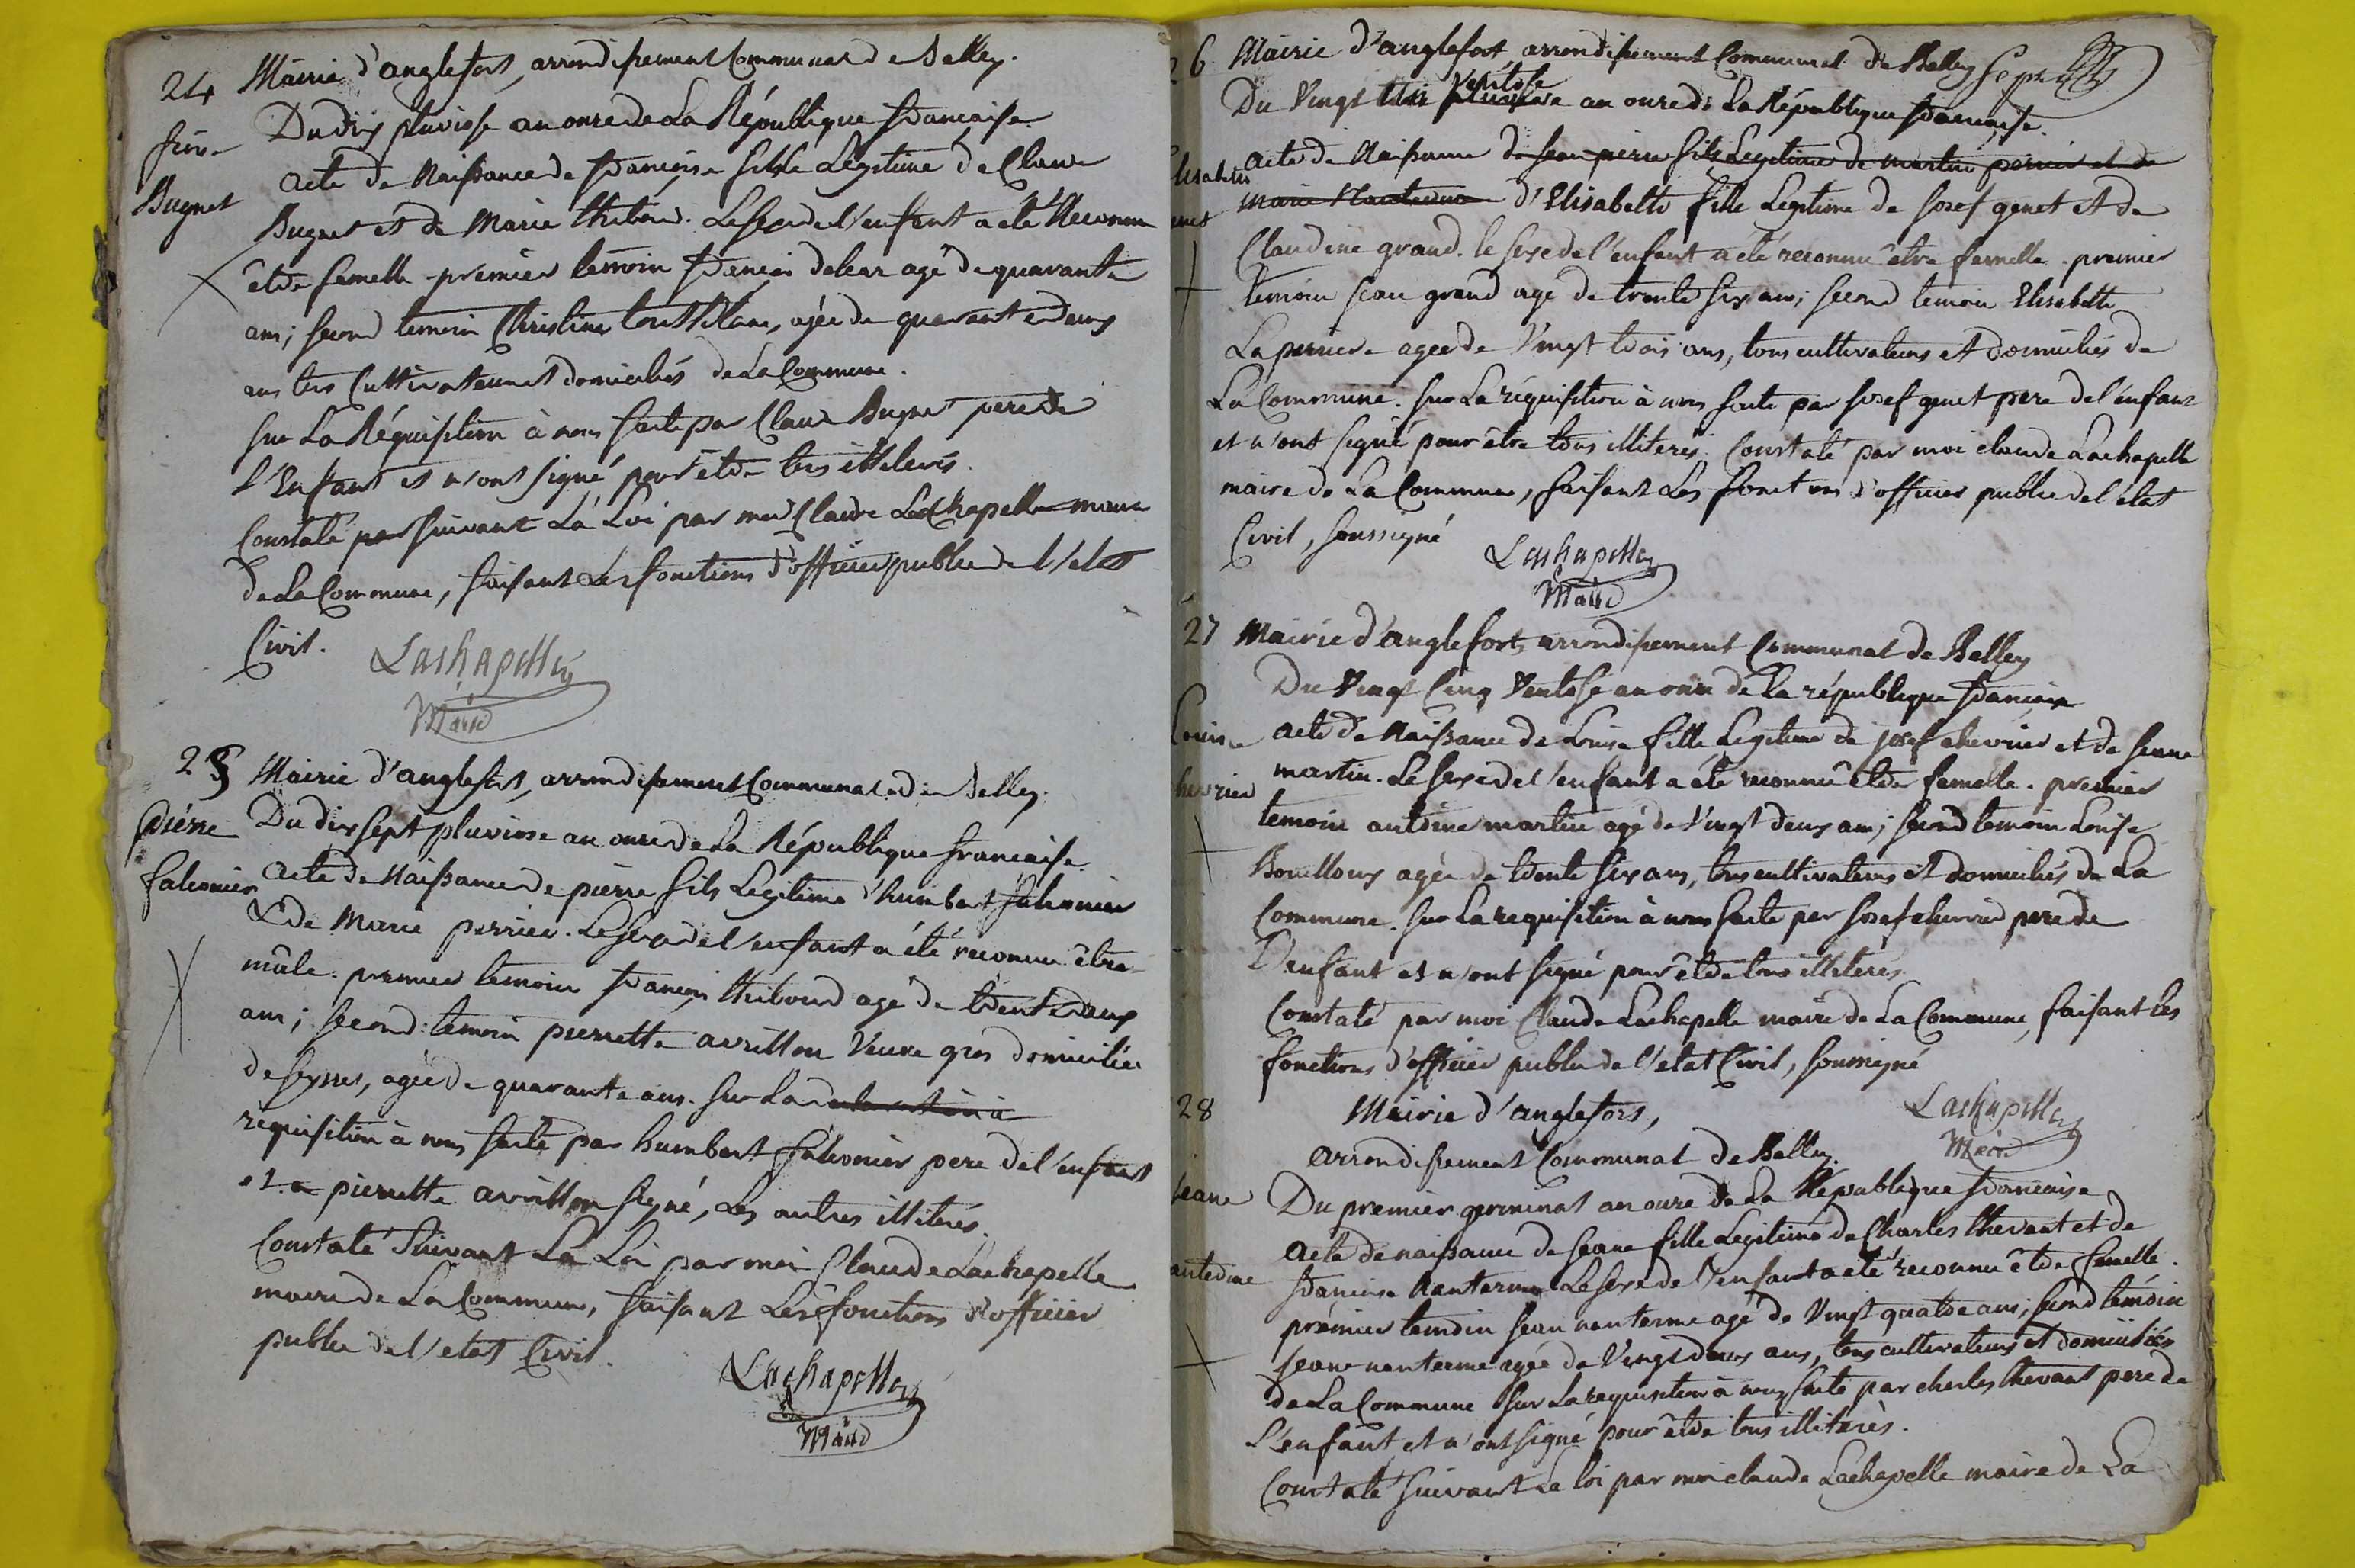 24
Mairie d'anglefort, arrondissement Communal de Belley.
Du dix pluviose an onze de La République francaise
Bugnet
acte de Naissance de francoise fille Legitime de Claude
Bugnet et de Marie thiboud. Le sexe de l'enfant a eté Reconnu
être femelle premier temoin francois agé de quarante
ans; second temoin Christine agée de quarante deux
ans tous Cultivateurs et domiciliés de La Commune.
sur La Réquisition à nous faite par Claude Bugnet pere de
l'Enfant et n'ont signé pour être tous illiterés.
Constaté par suivant La Loi par moi Claude Lachapelle maire
de La Commune, faisant Les fonctions d'officier public de l'etat
Civil.
Lachapelle
Maire
25
Mairie d'anglefort, arrondissement Communal de Belley.
pierre
Du dix sept pluviose an onze de La République francaise
falconier
acte de Naissance de pierre fils Legitime d'humbert falconier
& de Marie perrier. Le sexe de l'enfant a été reconnu être
mâle. premier temoin francois thiboud agé de trente deux
ans; second temoin pierrette avrillon Veuve gros domiciliée
de seyssel, agée de quarante ans. sur La declaration à
requisition à nous faite par humbert falconier pere de l'enfant
et a pierrette avrillon signé, Les autres illiterés.
Constaté Suivant La Loi par moi Claude Lachapelle
maire de La Commune, faisant Les fonctions d'officier
public de l'etat Civil.
Lachapelle
Maire
26
Mairie d'anglefort arrondissement Communal de Belley
ventose
Du Vingt pluviose an onze de La République francaise.
Elisabette
acte de Naissance de jean pierre fils Legitime de martin perrier et de
enet
marie Nanterme d'Elisabette fille Legitime de josef genet et de
Claudine grand. le sexe de l'enfant a eté reconnu être femelle. premier
temoin jean grand agé de trente six ans; second temoin Elisabette
La perriere agée de Vingt trois ans, tous cultivateurs et domiciliés de
La Commune. sur La réquisition à nous faite par josef genet pere de l'enfant
et n'ont signé pour être tous illiterés. Constaté par moi claude Lachapelle
maire de La Commune, faisant Les fonctions d'officier public de l'etat
Civil, soussigné
Lachapelle
Maire
27
Mairie d'anglefort, arrondissement Communal de Belley
Du Vingt Cinq Ventose an onze de La république francaise
Louise
acte de Naissance de Louise fille Legitime de josef chevrier et de jeane
hevrier
martin. Le sexe de l'enfant a été reconnu être femelle. premier
temoin antoine martin agé de Vingt deux ans; second temoin Louise
Bouilloux agée de trente six ans, tous cultivateurs et domiciliés de La
Commune. sur La requisition à nous faite par josef chevrier pere de
L'enfant et n'ont signé pour être tous illiterés.
Constaté par moi Claude Lachapelle maire de La Commune, faisant Les
fonctions d'officier public de l'etat Civil, soussigné
Lachapelle
Maire
28
Mairie d'anglefort,
arrondissement Communal de Belley.
jeane
Du premier germinal an onze de La République francaise
acte de naissance de jeane fille Legitime de Charles thevant et de
francoise Nanterme Le sexe de l'enfant a eté reconnu être femelle.
prémier temoin jean nanterme agé de Vingt quatre ans; second temoin
jeane nanterme agée de Vingt deux ans, tous cultivateurs et domiciliés
de La Commune sur La requisition à nous faite par charles thevant pere de
L'enfant et n'ont signé pour être tous illiterés.
Constaté suivant La loi par moi claude Lachapelle maire de La